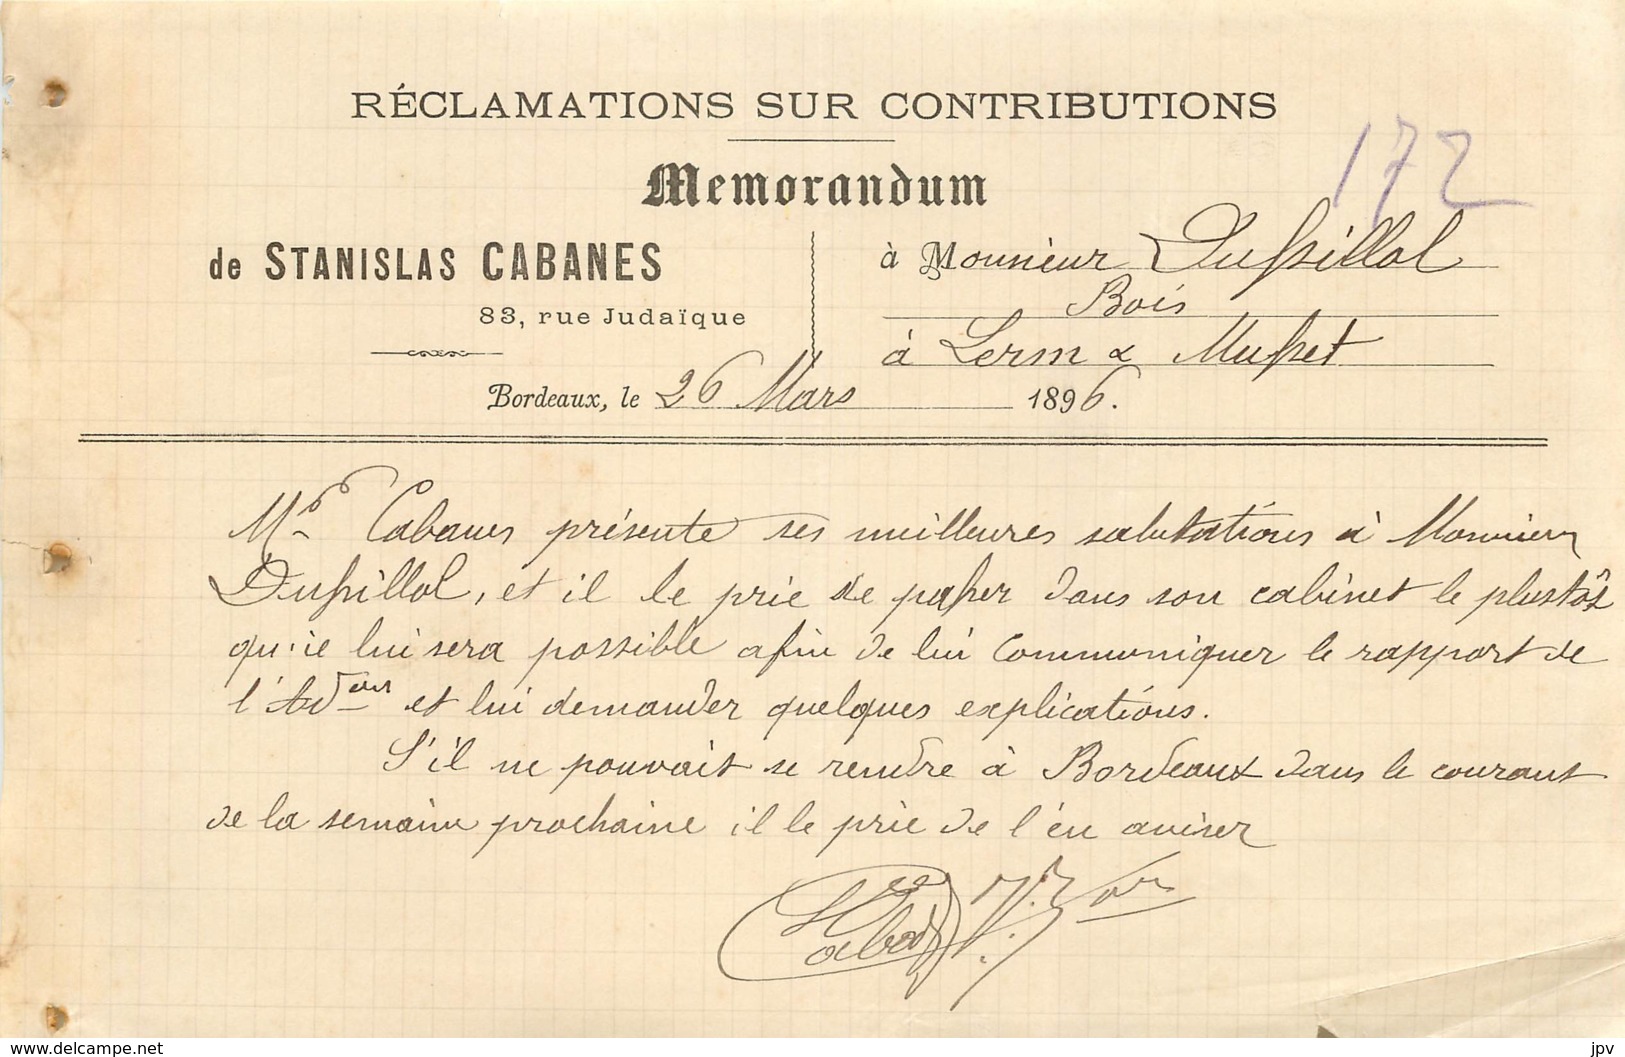 RÉCLAMATIONS SUR CONTRIBUTIONS
172
Memorandum
de STANISLAS CABANES
83, rue Judaïque
à Monsieur Dussillol
Bois
à Lerm & Musset
Bordeaux, le 26 Mars 1896.
Mr Cabanes présente ses meilleures salutations à Monsieur
Dussillol, et il le prie de passer dans son cabinet le plustôt
qu'il lui sera possible afin de lui communiquer le rapport de
l'Adon et lui demander quelques explications.
S'il ne pouvait se rendre à Bordeaux dans le courant
de la semaine prochaine il le prie de l'en aviser
www.delcampe.net
jpv